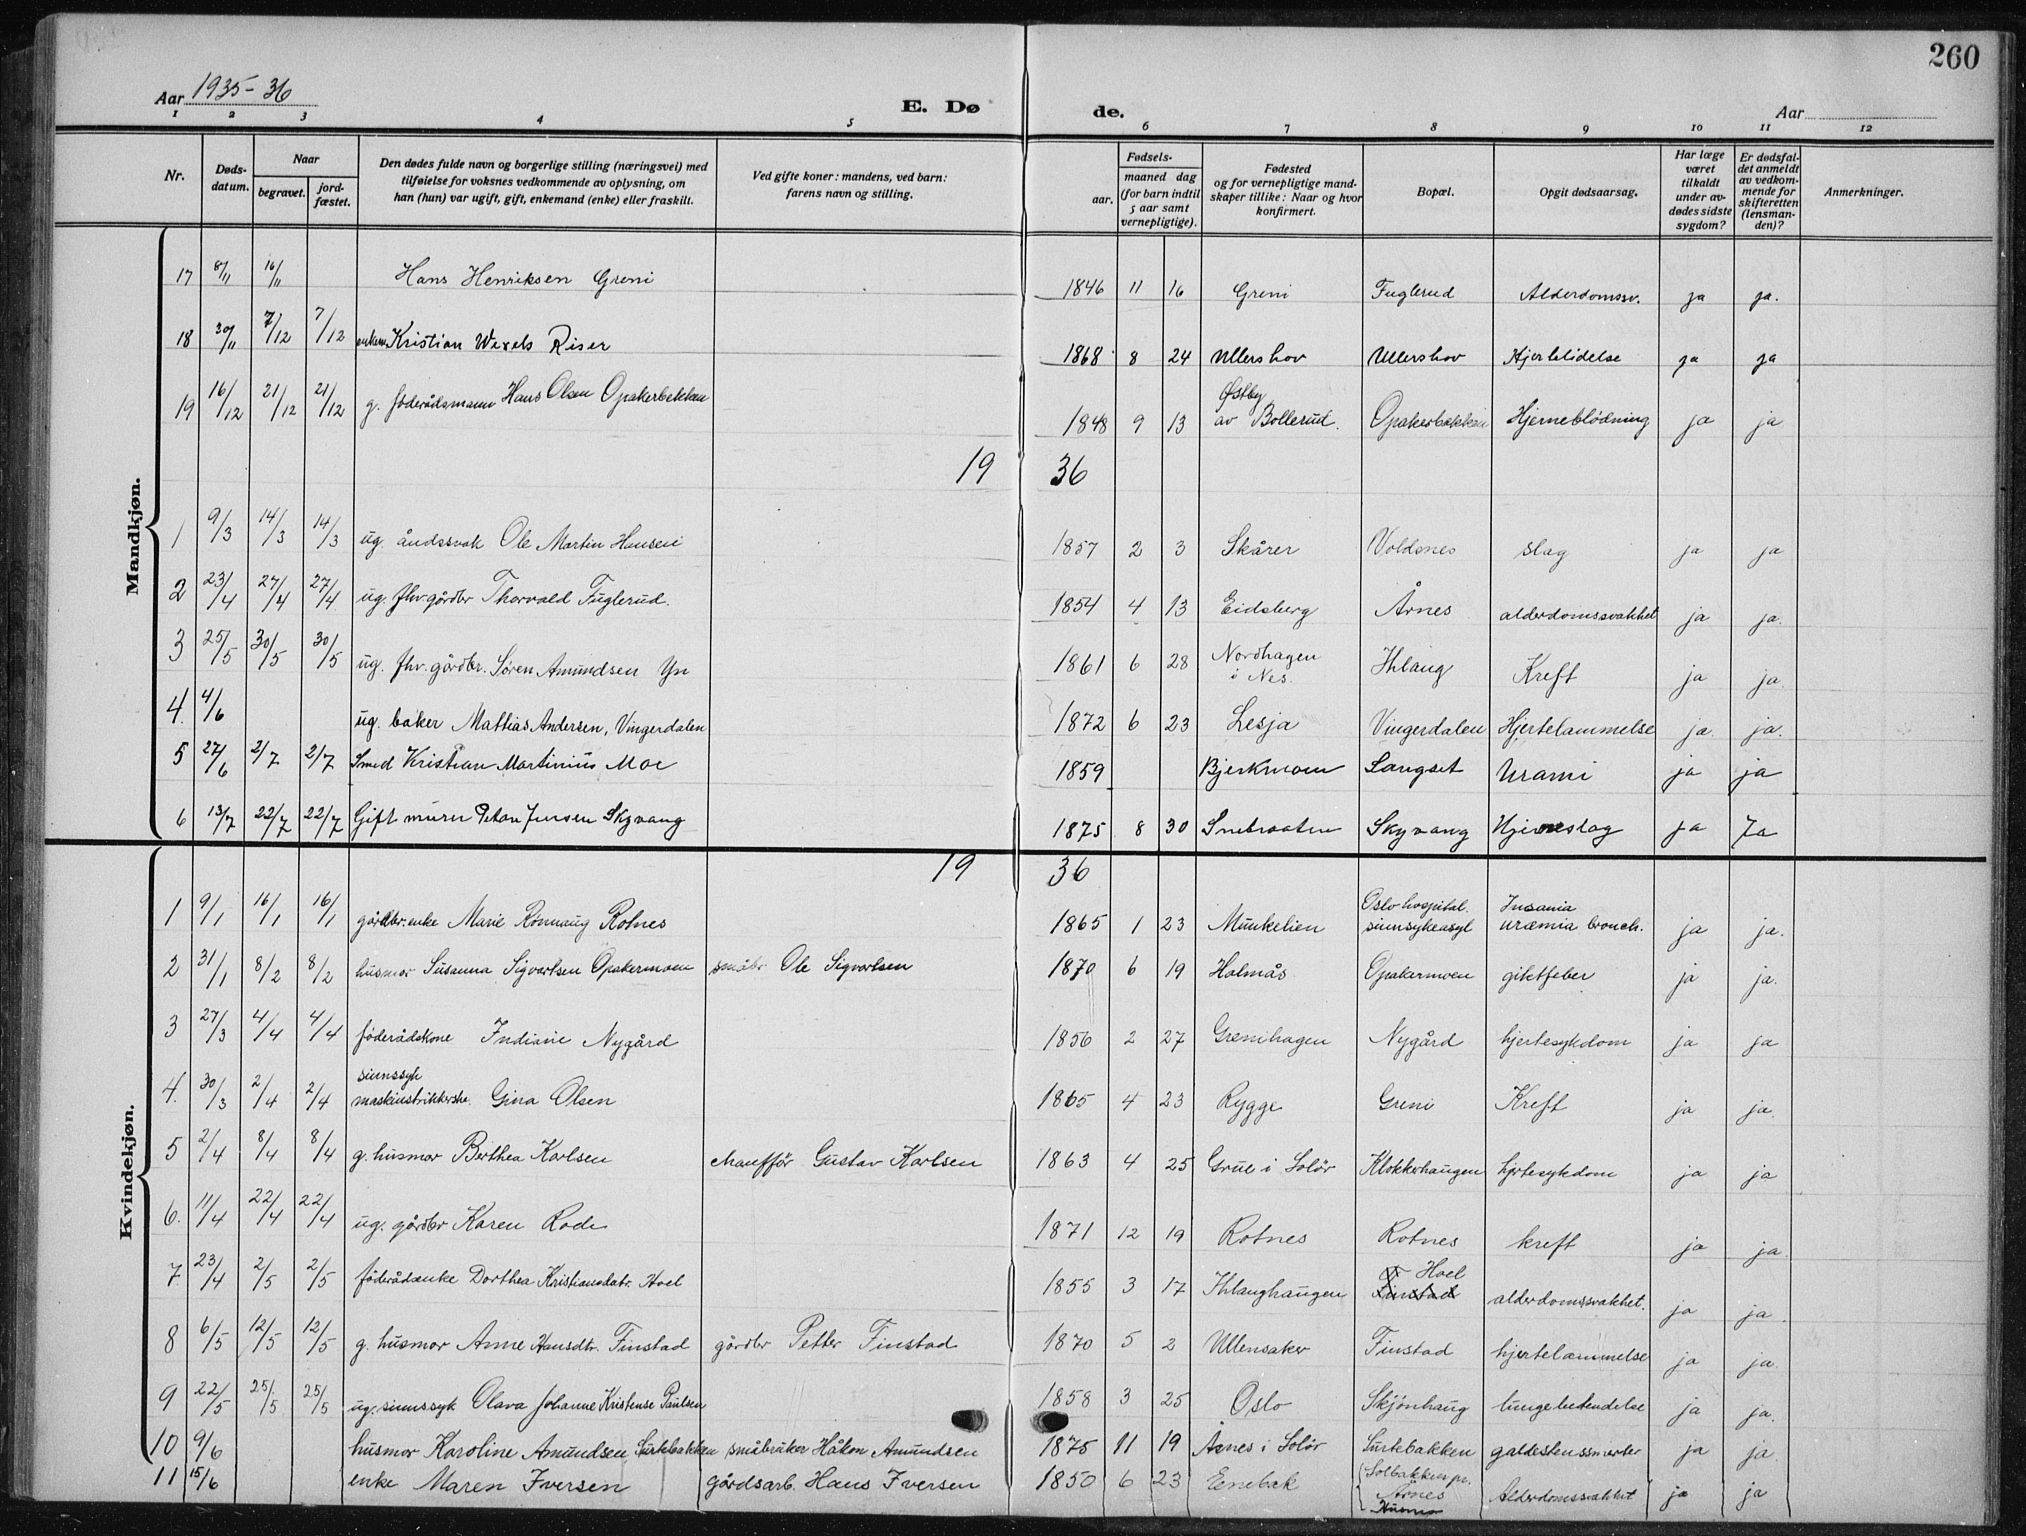 260
Aar 1935-36
E. Dø de.
Aar
1 2 3 4 5 6 7 8 9 10 11 12
Nr.
Døds-datum.
Naar
begravet.
jord-fæstet.
Den dødes fulde navn og borgerlige stilling (næringsvei) med
tilføielse for voksnes vedkommende av oplysning, om
han (hun) var ugift, gift, enkemand (enke) eller fraskilt.
Ved gifte koner: mandens, ved barn:
farens navn og stilling.
Fødsels-
aar.
maaned dag
(for barn indtil
5 aar samt
vernepligtige).
Fødested
og for vernepligtige mand-
skaper tillike: Naar og hvor
konfirmert.
Bopæl.
Opgit dødsaarsag.
Har læge
været
tilkaldt
under av-
dødes sidste
sygdom?
Er dødsfal-
det anmeldt
av vedkom-
mende for
skifteretten
(lensman-
den)?
Anmerkninger.
Mandkjøn.
17 8/11 16/11 Hans Henriksen Greni 1846 11 16 Greni Fuglerud Alderdomssv. ja ja.
18 30/11 7/12 7/12 enkem Kristian Wexels Riser 1868 8 24 Ullershov Ullershov Hjertelidelse ja ja
19 16/12 21/12 21/12 g. føderådsmann Hans Olsen Opakerbekken 1848 9 13 Østby av Bollerud. Opakerbekken Hjerneblödning ja ja
19 36
1 9/3 14/3 14/3 ug. åndssvak Ole Martin Hansen 1857 2 3 Skårer Voldsnes slag ja ja
2 23/4 27/4 27/4 ug. fhv gårdbr Thorvald Fuglerud. 1854 4 13 Eidsberg Årnes alderdomssvakhet ja ja.
3 25/5 30/5 30/5 ug. fhv. gårdbr. Søren Amundsen Yn 1861 6 28 Nordhagen i Nes. Ihlang Kreft ja ja.
4. 4/6 ug. baker Mattias Andersen, Vingerdalen 1872 6 23 Lesja Vingerdalen Hjertelammelse ja. ja.
5 27/6 2/7 2/7 Smed Kristian Martinius Moe 1859 Bjerkmoen Langset Urami ja ja
6 13/7 22/7 22/7 Gift murer Jensen Skyvang 1875 8 30 Skyvang ja Ja
19 36
Kvindekjøn.
1 9/1 16/1 16/1 gårdbr. enke Marie Rønnaug Rotnes 1865 1 23 Munkelien Oslo hospital. sinnsykeasyl Insania uræmia bronch. ja ja.
2 31/1 8/2 8/2 husmor Susanna Sigvartsen Opakermoen småbr. Ole Sigvartsen 1870 6 19 Holmås Opakermoen giktfeber ja ja.
3 27/3 4/4 4/4 føderådskone Indiane Nygård 1856 2 27 Grenihagen Nygård hjertesykdom ja ja
4. 30/3 2/4 2/4 sinnssyk maskinstrikkerske. Gina Olsen 1865 4 23 Rygge Greni Kreft ja ja.
5 2/4 8/4 8/4 g. husmor Berthea Karlsen chauffør Gustav Karlsen 1863 4 25 Grue i Solör Klokkerhaugen hjertesykdom ja ja
6. 11/4 22/4 22/4 ug. gårdbr Karen Rode 1871 12 19 Rotnes Rotnes kreft ja ja
7 23/4 2/5 2/5 föderådsenke Dorthea Kristiansdatr. Hoel 1855 3 17 Ihlanghaugen Hoel Finstad alderdomssvakhet. ja ja.
8 6/5 12/5 12/5 g. husmor Anne Hansdtr. Finstad gårdbr Petter Finstad 1870 5 2 Ullensaker Finstad hjertelammelse ja ja.
9 22/5 25/5 25/5 ug. sinnssyk Olava Johanne Kristense Paulsen 1858 3 25 Oslo Skjönhaug lungebetendelse ja ja.
10 9/6 husmor Karoline Amundsen Surkebakken småbruker Håkon Amundsen 1875 11 19 Åsnes i Solör Surkebakken galdestenssmerter ja ja.
11 15/6 enke Maren Iversen gårdsarb. Hans Iversen 1850 6 23 Enebak Solbakken pr. Årnes Alderdomssvakhet ja ja